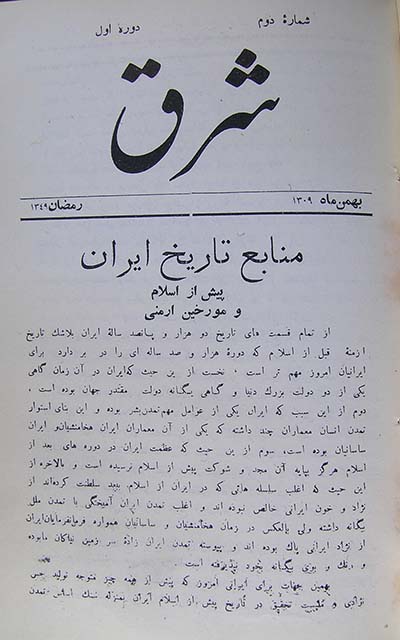 شمارهٔ دوم
دورهٔ اول
شرق
بهمن ماه ۱۳۰۹
رمضان ۱۳۴۹
منابع تاریخ ایران
پیش از اسلام
و مورخین ارمنی
از تمام قسمت های تاریخ دو هزار و پانصد سالهٔ ایران بلاشك تاریخ
ازمنهٔ قبل از اسلام که دورهٔ هزار و صد ساله ای را در بر دارد برای
ایرانیان امروز مهم تر است ، نخست از ین حیث که ایران در آن زمان گاهی
یکی از دو دولت بزرك دنیا و گاهی یگانه دولت مقتدر جهان بوده است ،
دوم از این سبب که ایران یکی از عوامل مهم تمدن بشر بوده و این بنای استوار
تمدن انسان معماران چند داشته که یکی از آن معماران ایران هخامنشیان و ایران
ساسانیان بوده است، سوم از ین حیث که عظمت ایران در دوره های بعد از
اسلام هرگز بپایهٔ آن مجد و شوکت پیش از اسلام نرسیده است و بالاخره از
این حیث که اغلب سلسله هائی که در ایران از اسلام ببعد سلطنت کرده‌اند از
نژاد و خون ایرانی خالص نبوده اند و اغلب تمدن ایران آمیختگی با تمدن ملل
بیگانه داشته ولی بالعکس در زمان هخامنشیان و ساسانیان همواره فرمانفرمایان ایران
از نژاد ایرانی پاك بوده اند و پیوسته تمدن ایران زادهٔ سر زمین نیاکان ما بوده
و رنك و بوی بیگانه بخود نپذیرفته است .
بهمین جهات برای ایرانی امروز که پیش از همه چیز متوجه تولید حس
نژادی و ملیت تحقیق در تاریخ پیش از اسلام ایران بمنزله سنك اساس تمدن